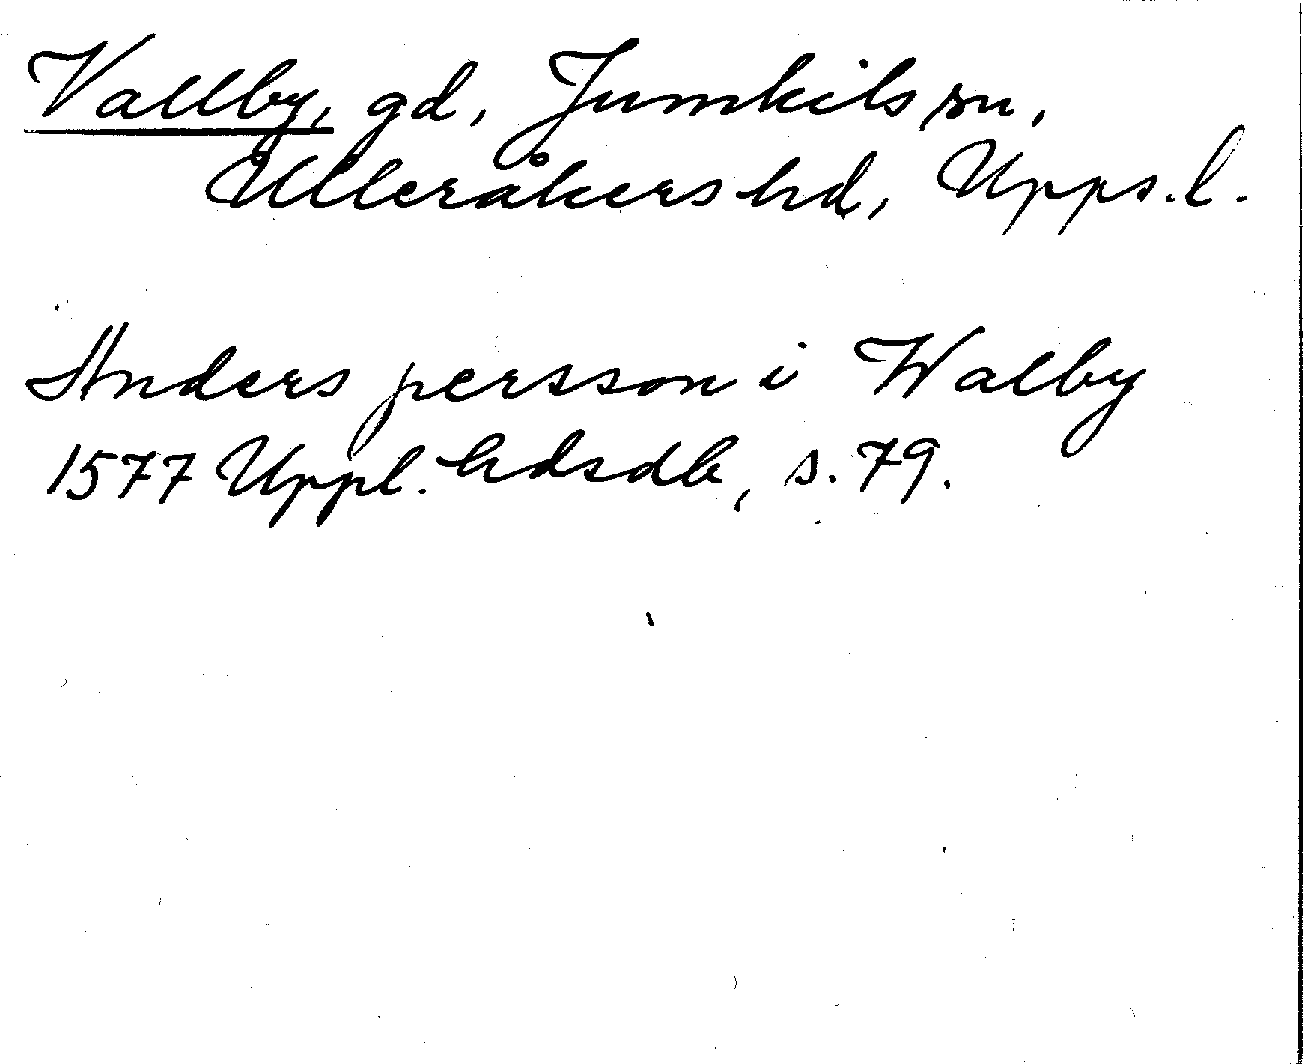 Vallby, gd, Jumkils sn,
Ulleråkers hd, Upps. l.
Anders persson i Walby
1577 Uppl. hdsdb, s. 79.